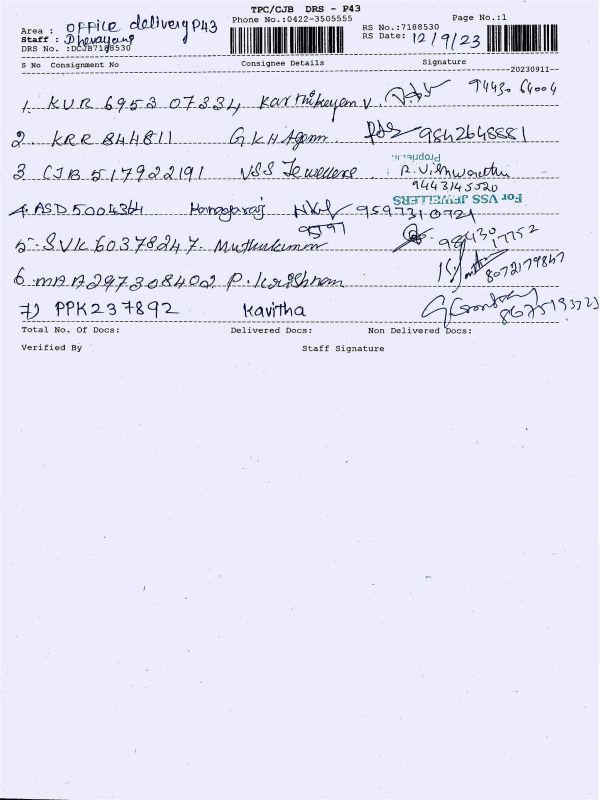 TPC/CJB DRS - P43
Area : office delivery P43 Phone No.:0422-3505555 RS No.:7188530 Page No.:1
Staff : RS Date: 12/9/23
DRS No. :DCJB7188530
S No Consignment No Consignee Details Signature
20230911--
1. KUR 695307334 Karthikeyan V. 94430 64004
2. KRR 844811 GKH Agem 9842648881
3 CJB 517922191 VSS Jewellers. R. Vishwanathn
Proprietrix
9443145520
For VSS JEWELLERS
4. ASD5004364 Kanagaraj 9597310721
9597
5. SVK60378247. Muthukumar 98430 17752
6 MAA297308402 P. Krishnan 8072179847
7) PPK237892 Kavitha
Total No. Of Docs: Delivered Docs: Non Delivered Docs:
Verified By Staff Signature